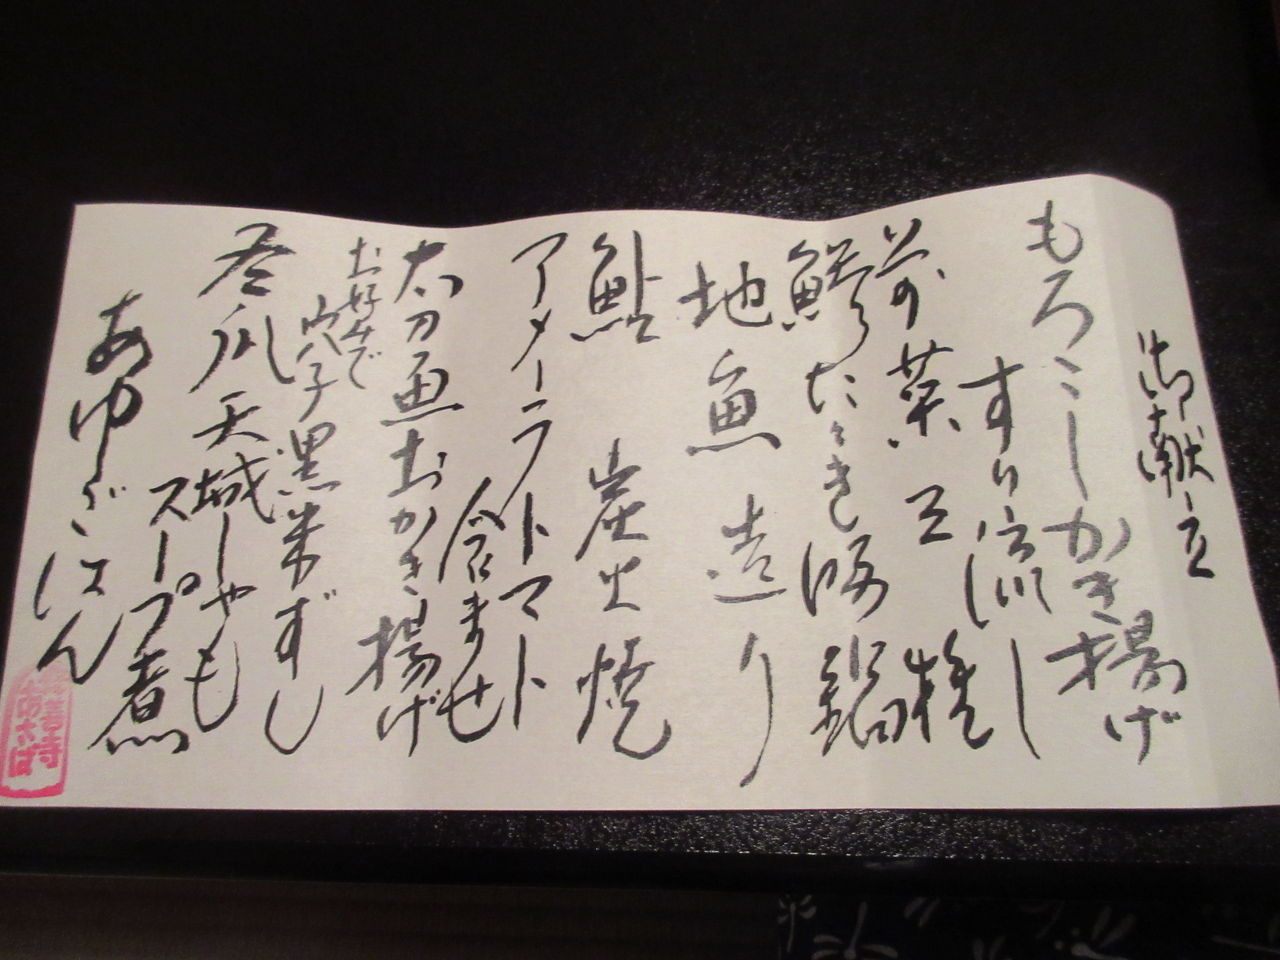 御献立
もろこしかき揚げ
すり流し
前菜五種
鱧たたき 鍋
地魚造り
鮎 炭火焼
アメーラトマト
合ませ
太刀魚おかき揚げ
お好みで
穴子黒米ずし
冬瓜天城しゃも
スープ煮
あゆごはん